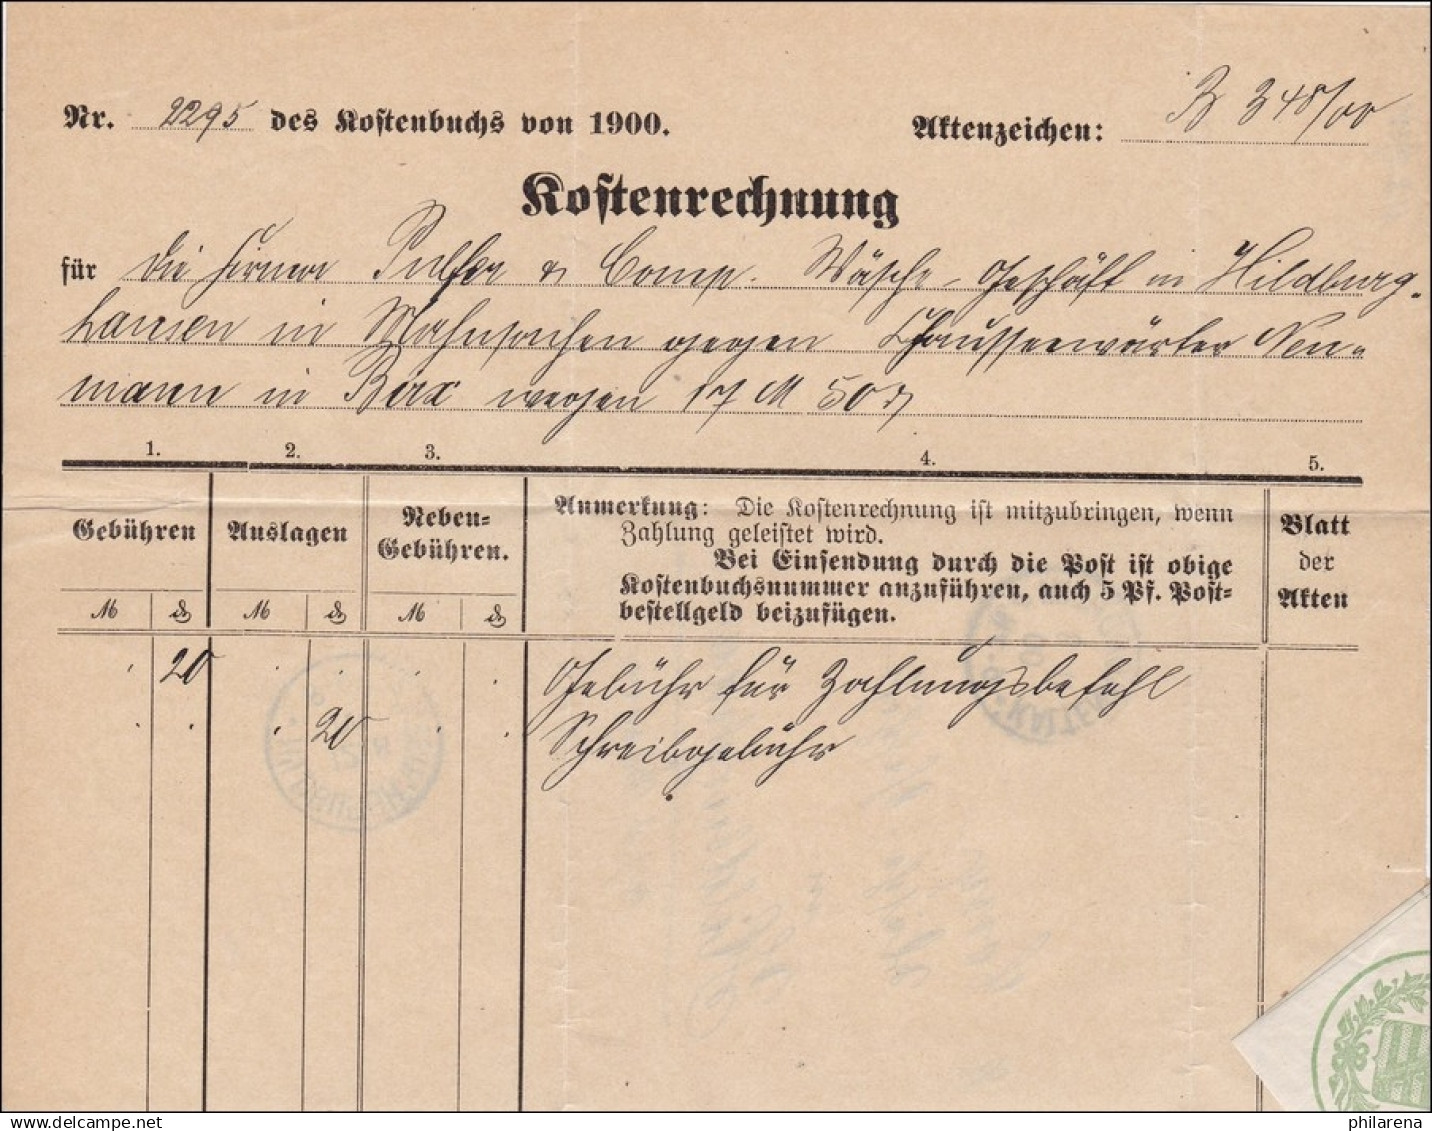 Nr. 2295 des Kostenbuchs von 1900.
Aktenzeichen: B 348/00
Kostenrechnung
für die Firma & Comp. Wäsche-Geschäft in Hildburg-
hausen in Mahnsachen gegen Chausseewärter Neu-
mann in Birx wegen 17 M 50 ₰
1. 2. 3. 4. 5.
Gebühren
Auslagen
Neben-
Gebühren.
Anmerkung: Die Kostenrechnung ist mitzubringen, wenn
Zahlung geleistet wird.
Bei Einsendung durch die Post ist obige
Kostenbuchsnummer anzuführen, auch 5 Pf. Post-
bestellgeld beizufügen.
Blatt
der
Akten
M ₰ M ₰ M ₰
20 Gebühr für Zahlungsbefehl
20 Schreibgebühr
delcampe.net
philarena